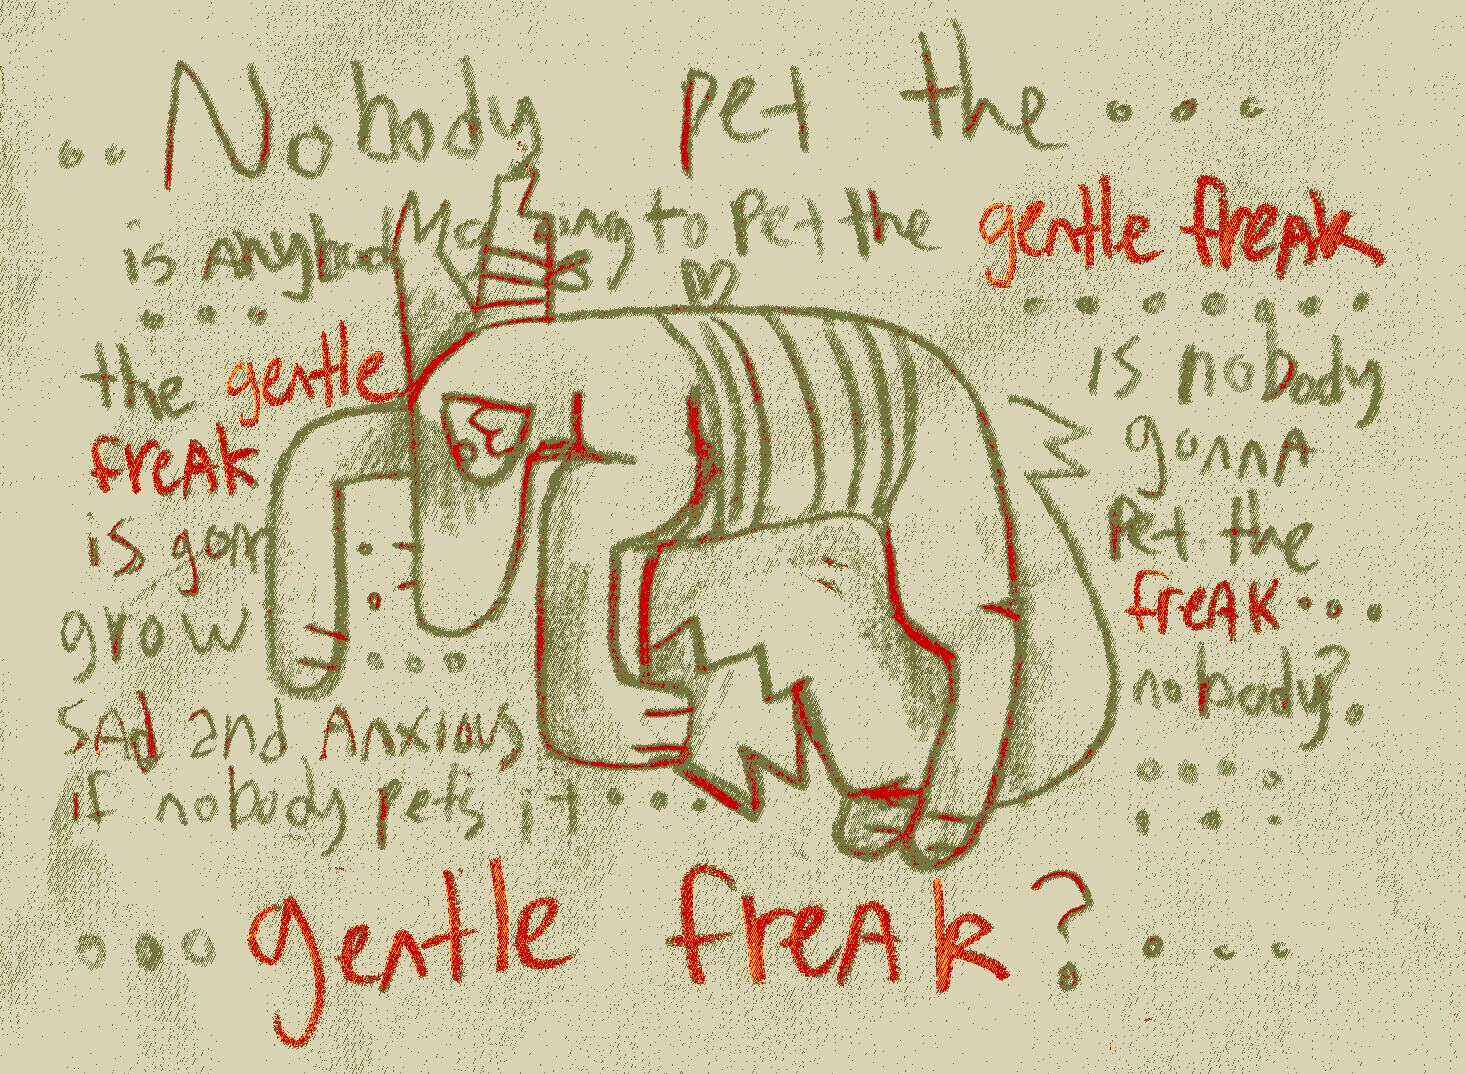 .. Nobody pet the ...
is anybody going to pet the gentle freak
...
the gentle
freak
is gonn
grow
...
sad and anxious
if nobody pets it ...
.......
is nobody
gonna
pet the
freak...
nobody?
.
....
...
... gentle freak? ...